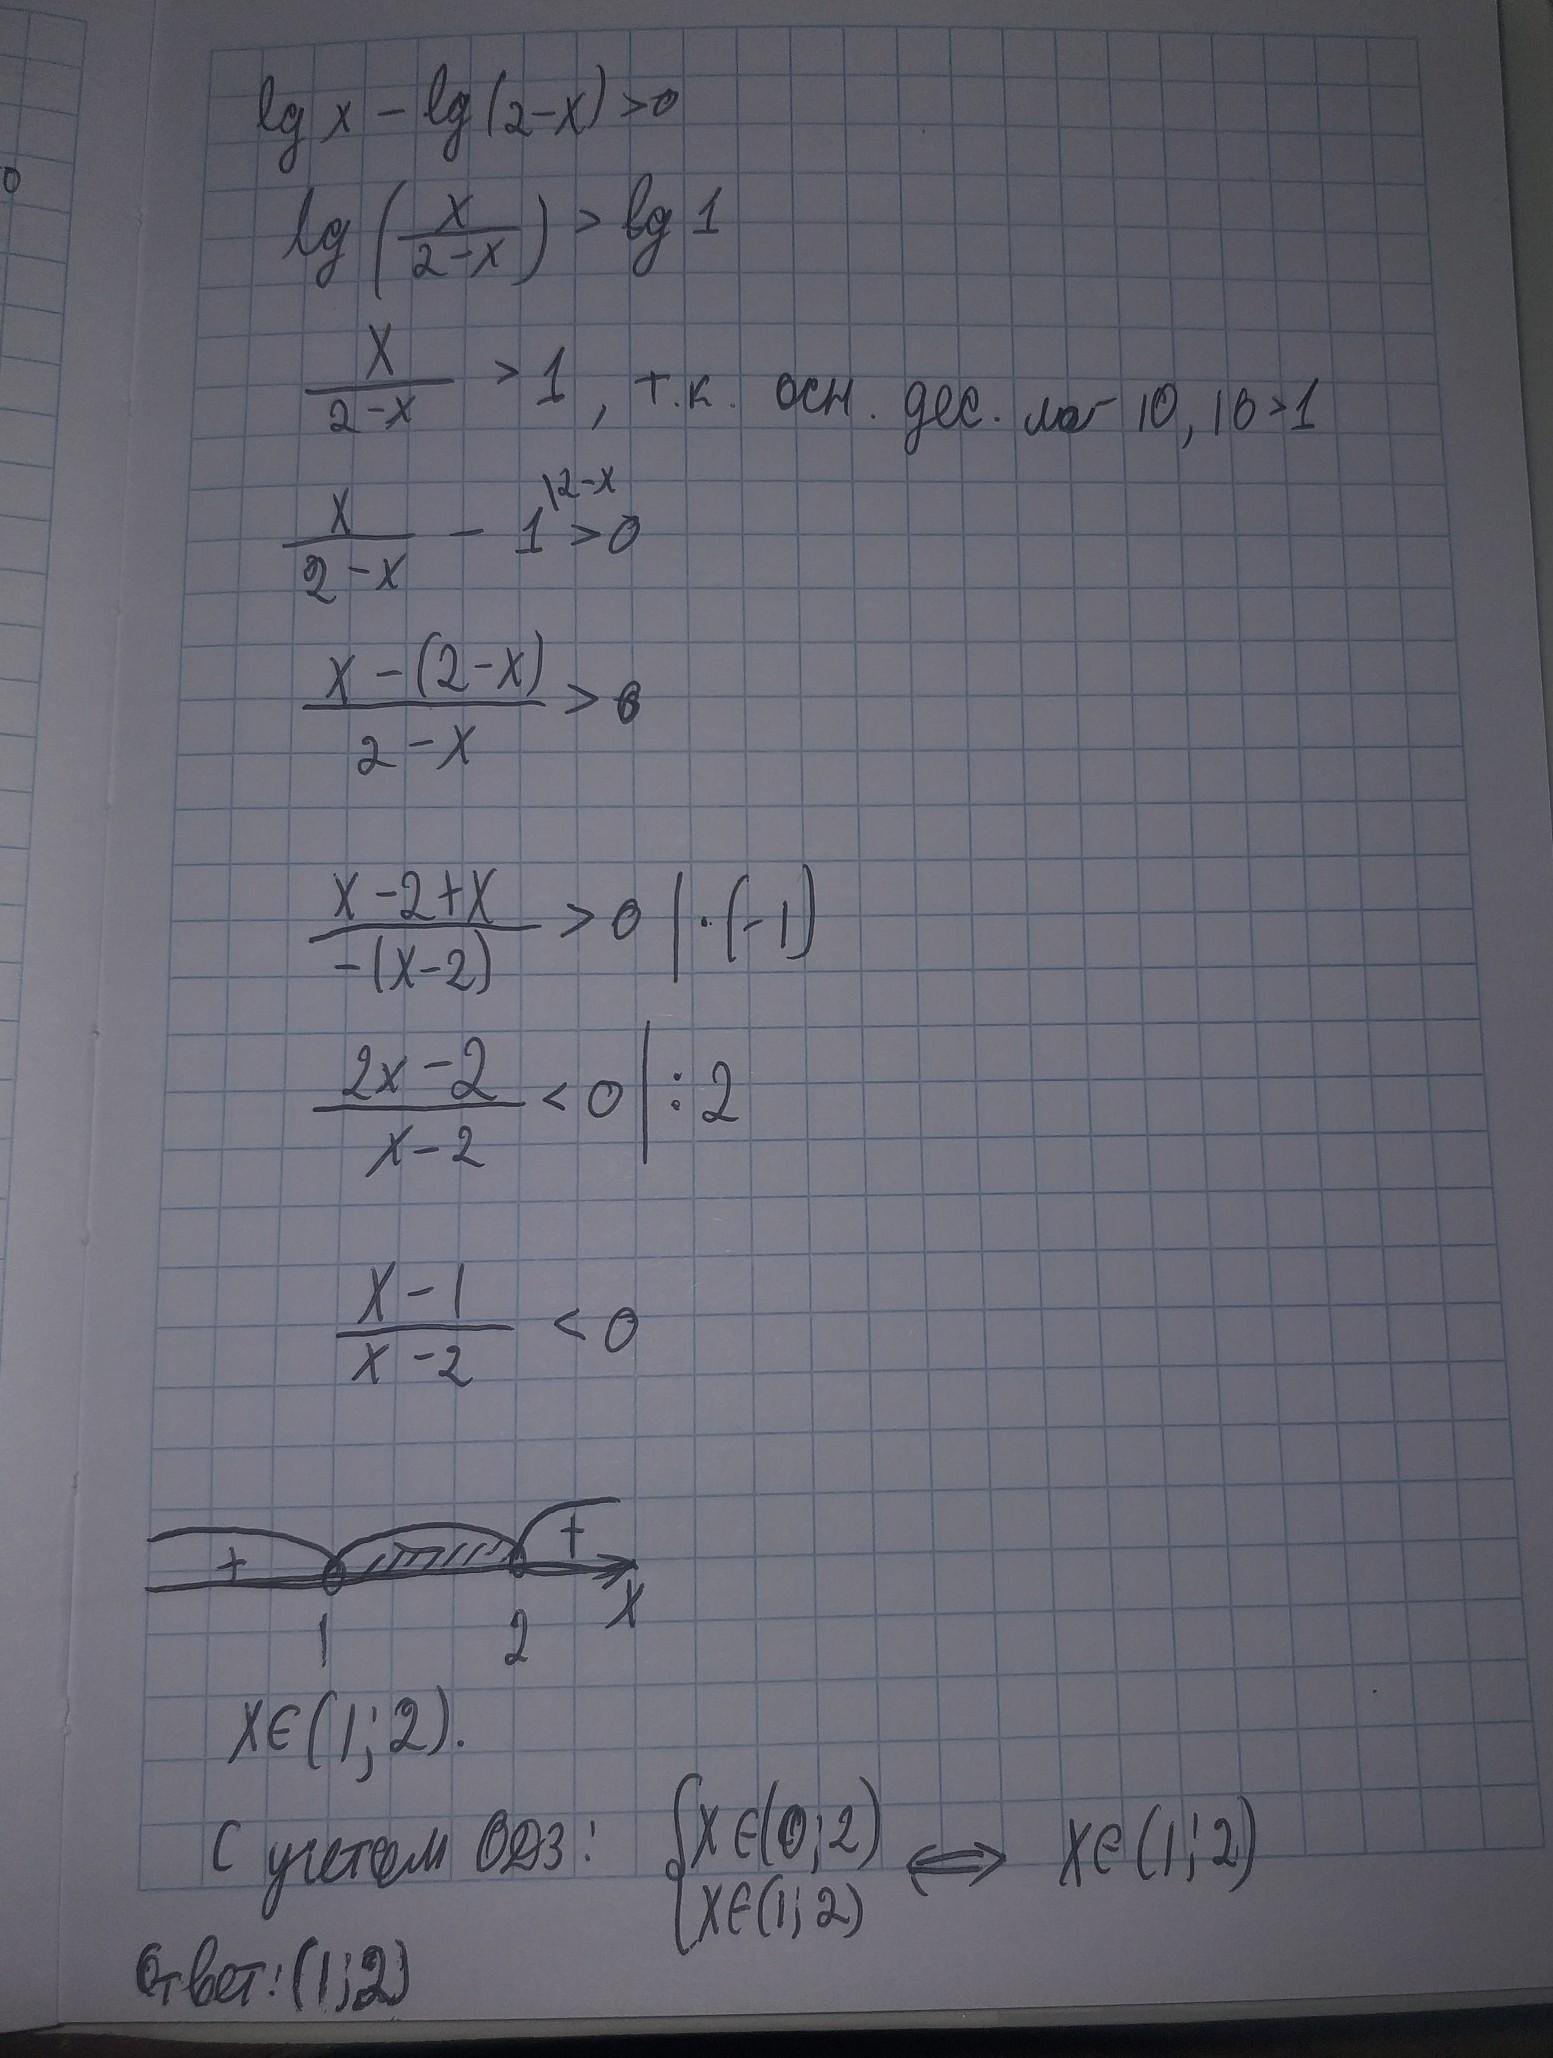 lg x - lg (2-x) > 0
lg (x/(2-x)) > lg 1
x/(2-x) > 1, т.к. осн. дес. лог 10, 10 > 1
x/(2-x) - 1 |2-x > 0
(x - (2-x))/(2-x) > 0
(x-2+x)/(-(x-2)) > 0 | · (-1)
(2x-2)/(x-2) < 0 | : 2
(x-1)/(x-2) < 0
+ +
1 2 x
x∈(1;2).
С учетом ОДЗ: { x∈(0;2) ⟺ x∈(1;2)
x∈(1;2)
Ответ: (1;2)